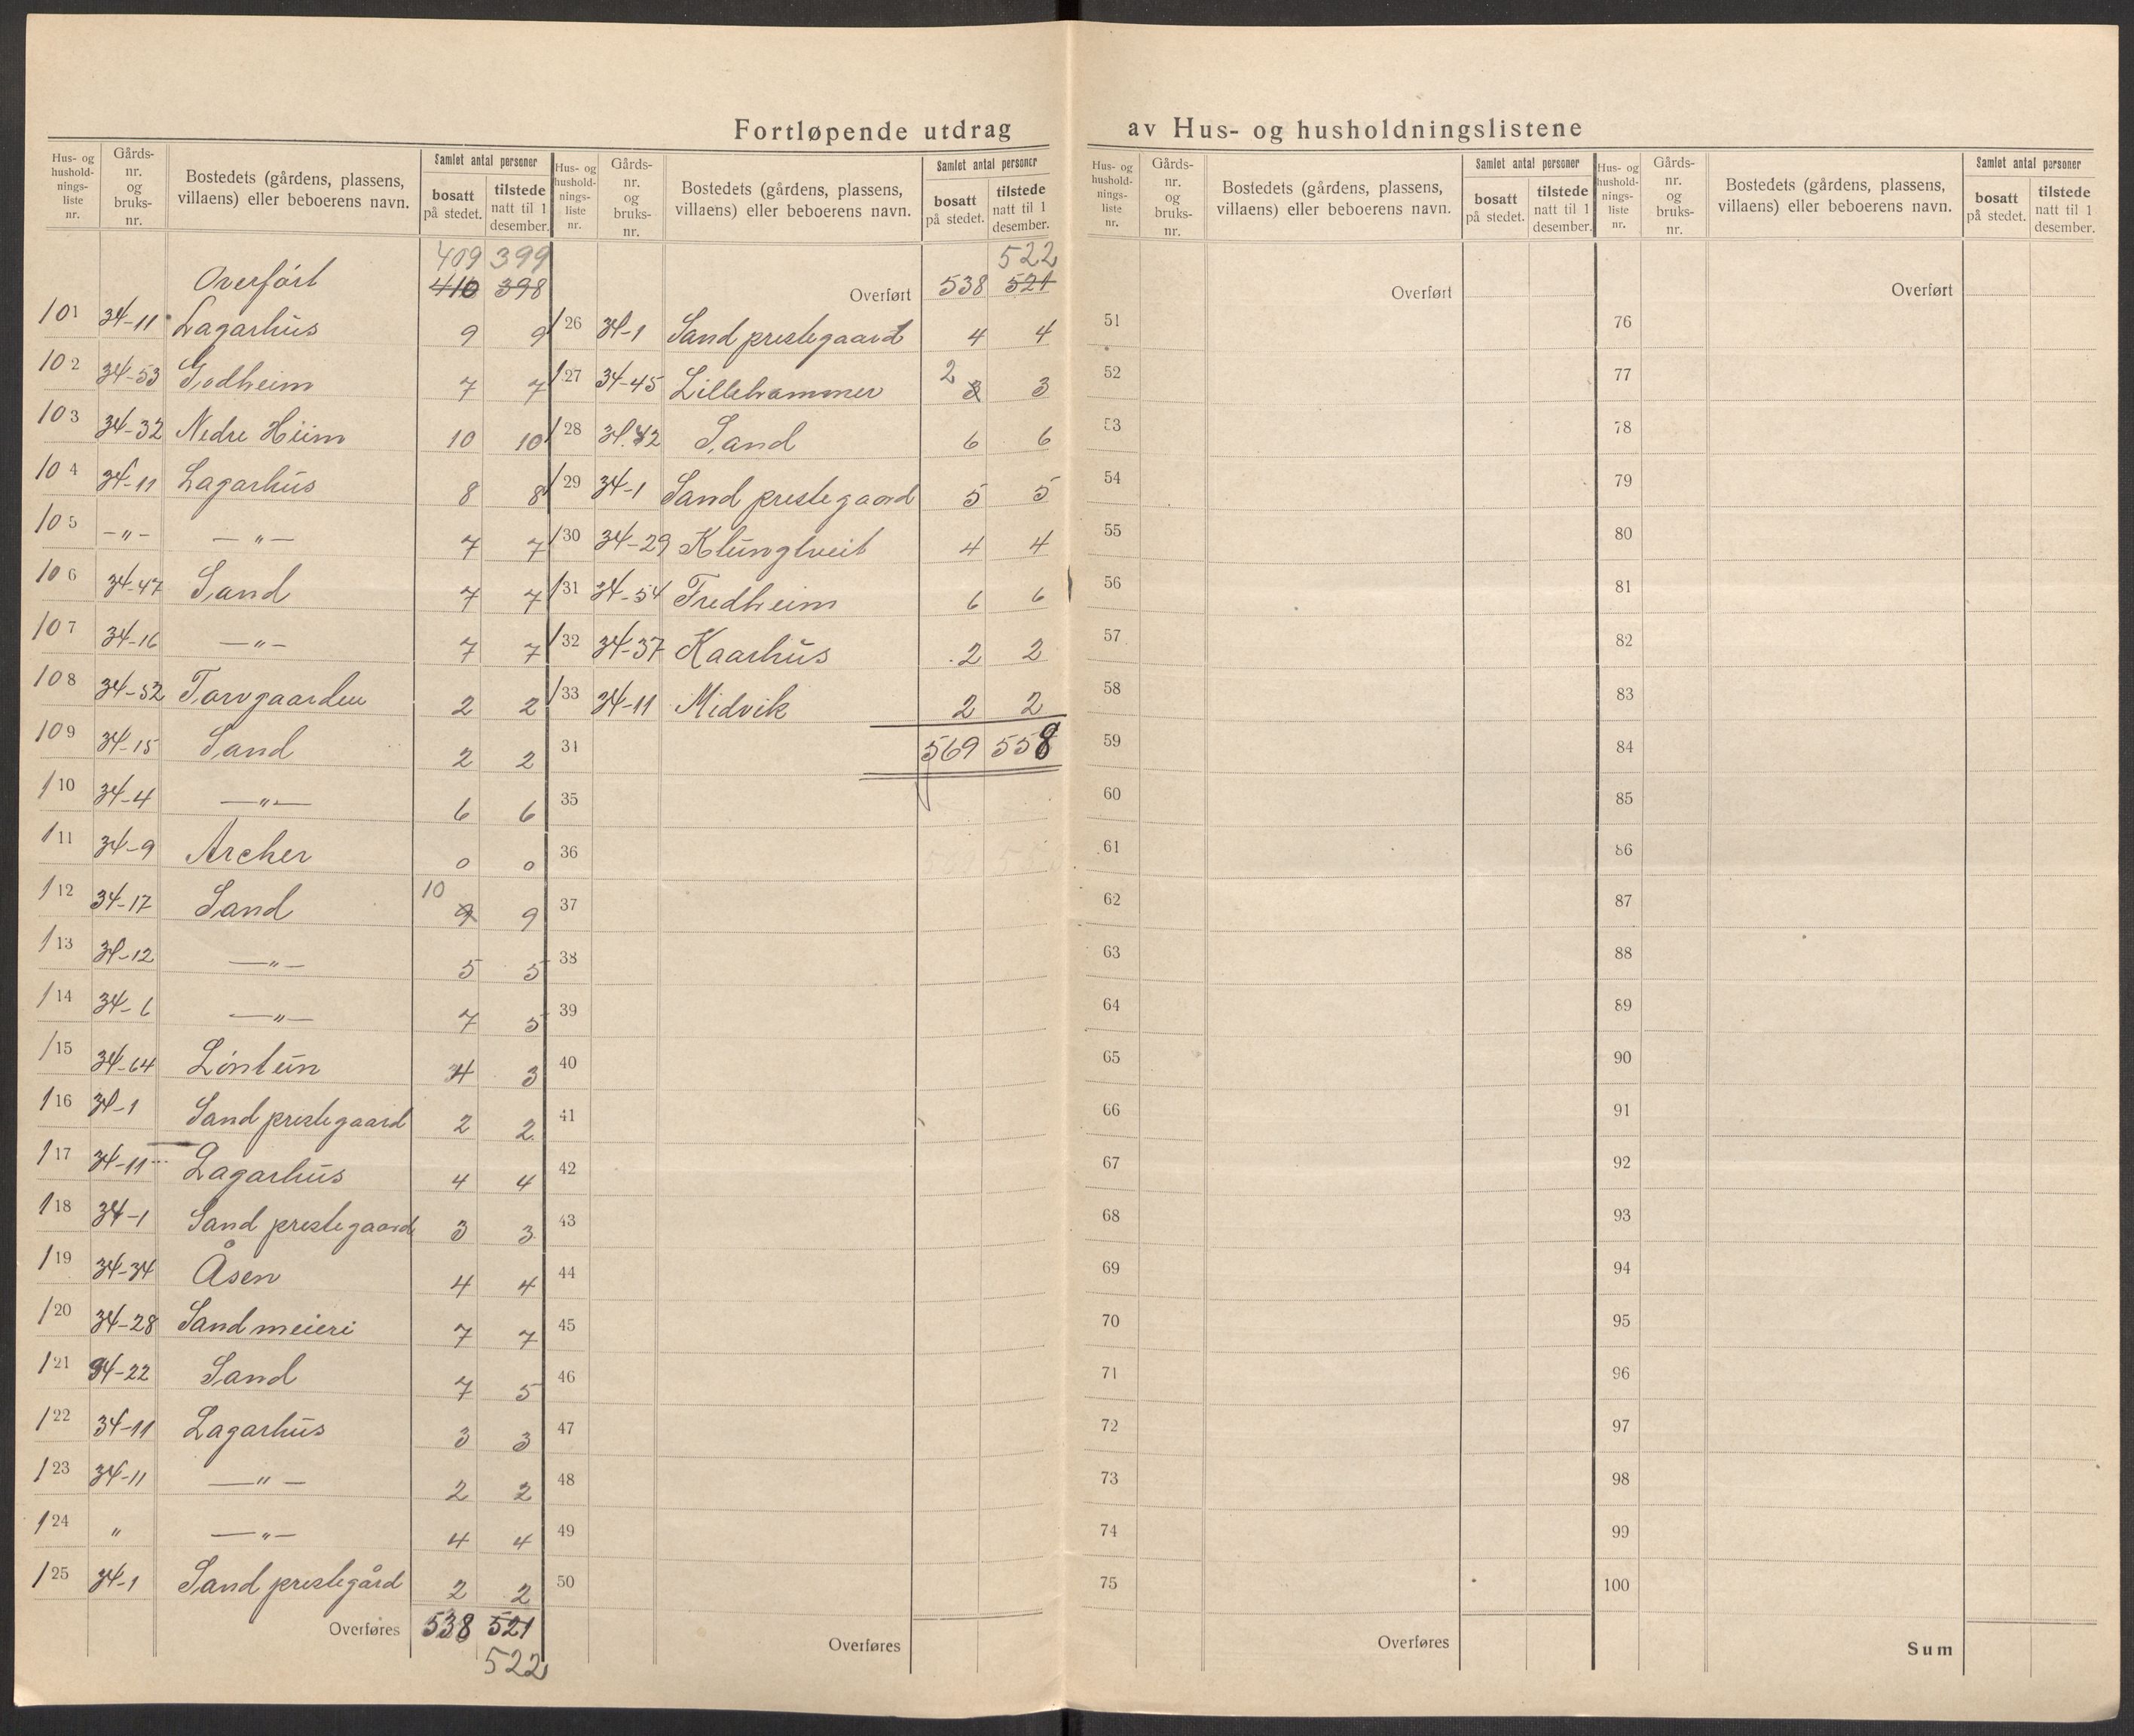 Fortløpende utdrag av Hus- og husholdningslistene
Hus- og hushold- nings- liste nr. Gårds- nr. og bruks- nr. Bostedets (gårdens, plassens, villaens) eller beboerens navn. Samlet antal personer bosatt på stedet. tilstede natt til 1 desember.
409 399
Overført 410 398
101 34-11 Lagarhus 9 9
102 34-53 Godheim 7 7
103 34-32 Nedre Heim 10 10
104 34-11 Lagarhus 8 8
105 -"- -"- 7 7
106 34-47 Sand 7 7
107 34-16 -"- 7 7
108 34-52 Torvgaarden 2 2
109 34-15 Sand 2 2
110 34-4 -"- 6 6
111 34-9 Archer 0 0
112 34-17 Sand 10 9 9
113 34-12 -"- 5 5
114 34-6 -"- 7 5
115 34-64 Løntun 4 3
116 34-1 Sand prestegaard 2 2
117 34-11 Lagarhus 4 4
118 34-1 Sand prestegaard 3 3
119 34-34 Åsen 4 4
120 34-28 Sand meieri 7 7
121 34-22 Sand 7 5
122 34-11 Lagarhus 3 3
123 34-11 -"- 2 2
124 " -"- 4 4
125 34-1 Sand prestegård 2 2
Overføres 538 521
522
Hus- og hushold- nings- liste nr. Gårds- nr. og bruks- nr. Bostedets (gårdens, plassens, villaens) eller beboerens navn. Samlet antal personer bosatt på stedet. tilstede natt til 1 desember.
522
Overført 538 521
126 34-1 Sand prestegaard 4 4
127 34-45 Lillehammer 2 3 3
128 34-42 Sand 6 6
129 34-1 Sand prestegaard 5 5
130 34-29 Klungtveit 4 4
131 34-54 Fredheim 6 6
132 34-37 Kaarhus 2 2
133 34-11 Midvik 2 2
34 569 558
35
36
37
38
39
40
41
42
43
44
45
46
47
48
49
50
Overføres
Hus- og hushold- nings- liste nr. Gårds- nr. og bruks- nr. Bostedets (gårdens, plassens, villaens) eller beboerens navn. Samlet antal personer bosatt på stedet. tilstede natt til 1 desember.
Overført
51
52
53
54
55
56
57
58
59
60
61
62
63
64
65
66
67
68
69
70
71
72
73
74
75
Overføres
Hus- og hushold- nings- liste nr. Gårds- nr. og bruks- nr. Bostedets (gårdens, plassens, villaens) eller beboerens navn. Samlet antal personer bosatt på stedet. tilstede natt til 1 desember.
Overført
76
77
78
79
80
81
82
83
84
85
86
87
88
89
90
91
92
93
94
95
96
97
98
99
100
Sum